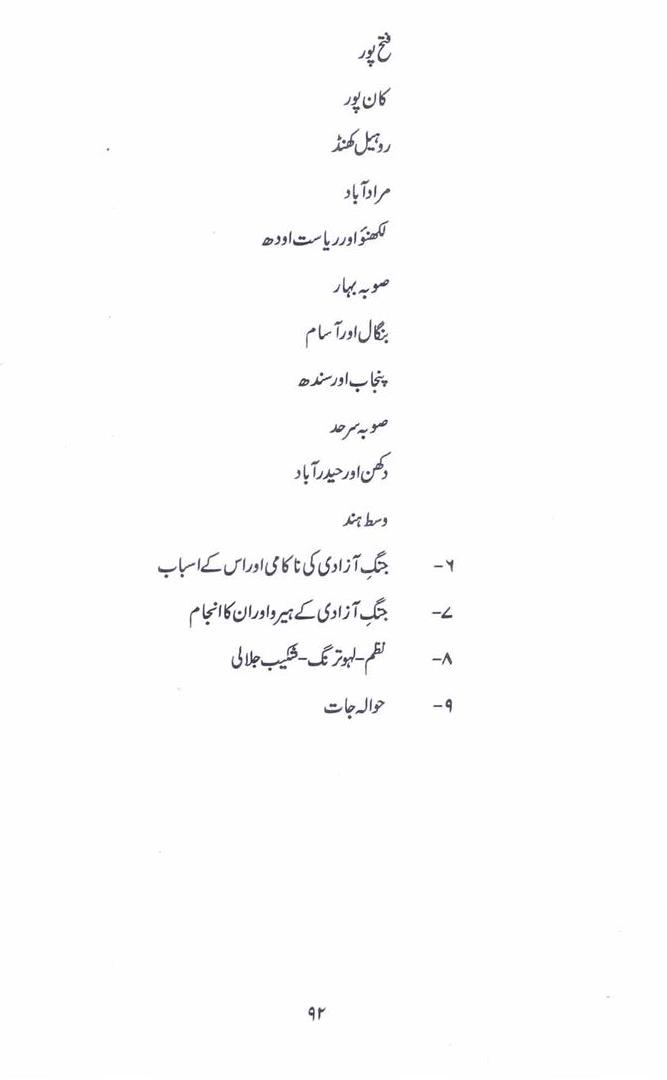 فتح پور
کان پور
روہیل کھنڈ
مرادآباد
لکھنؤ اور ریاست اودھ
صوبہ بہار
بنگال اور آسام
پنجاب اور سندھ
صوبہ سرحد
دکھن اور حیدرآباد
وسط ہند
۶- جنگِ آزادی کی ناکامی اور اس کے اسباب
۷- جنگِ آزادی کے ہیرو اور ان کا انجام
۸- نظم-لہو ترنگ-شکیب جلالی
۹- حوالہ جات
۹۲